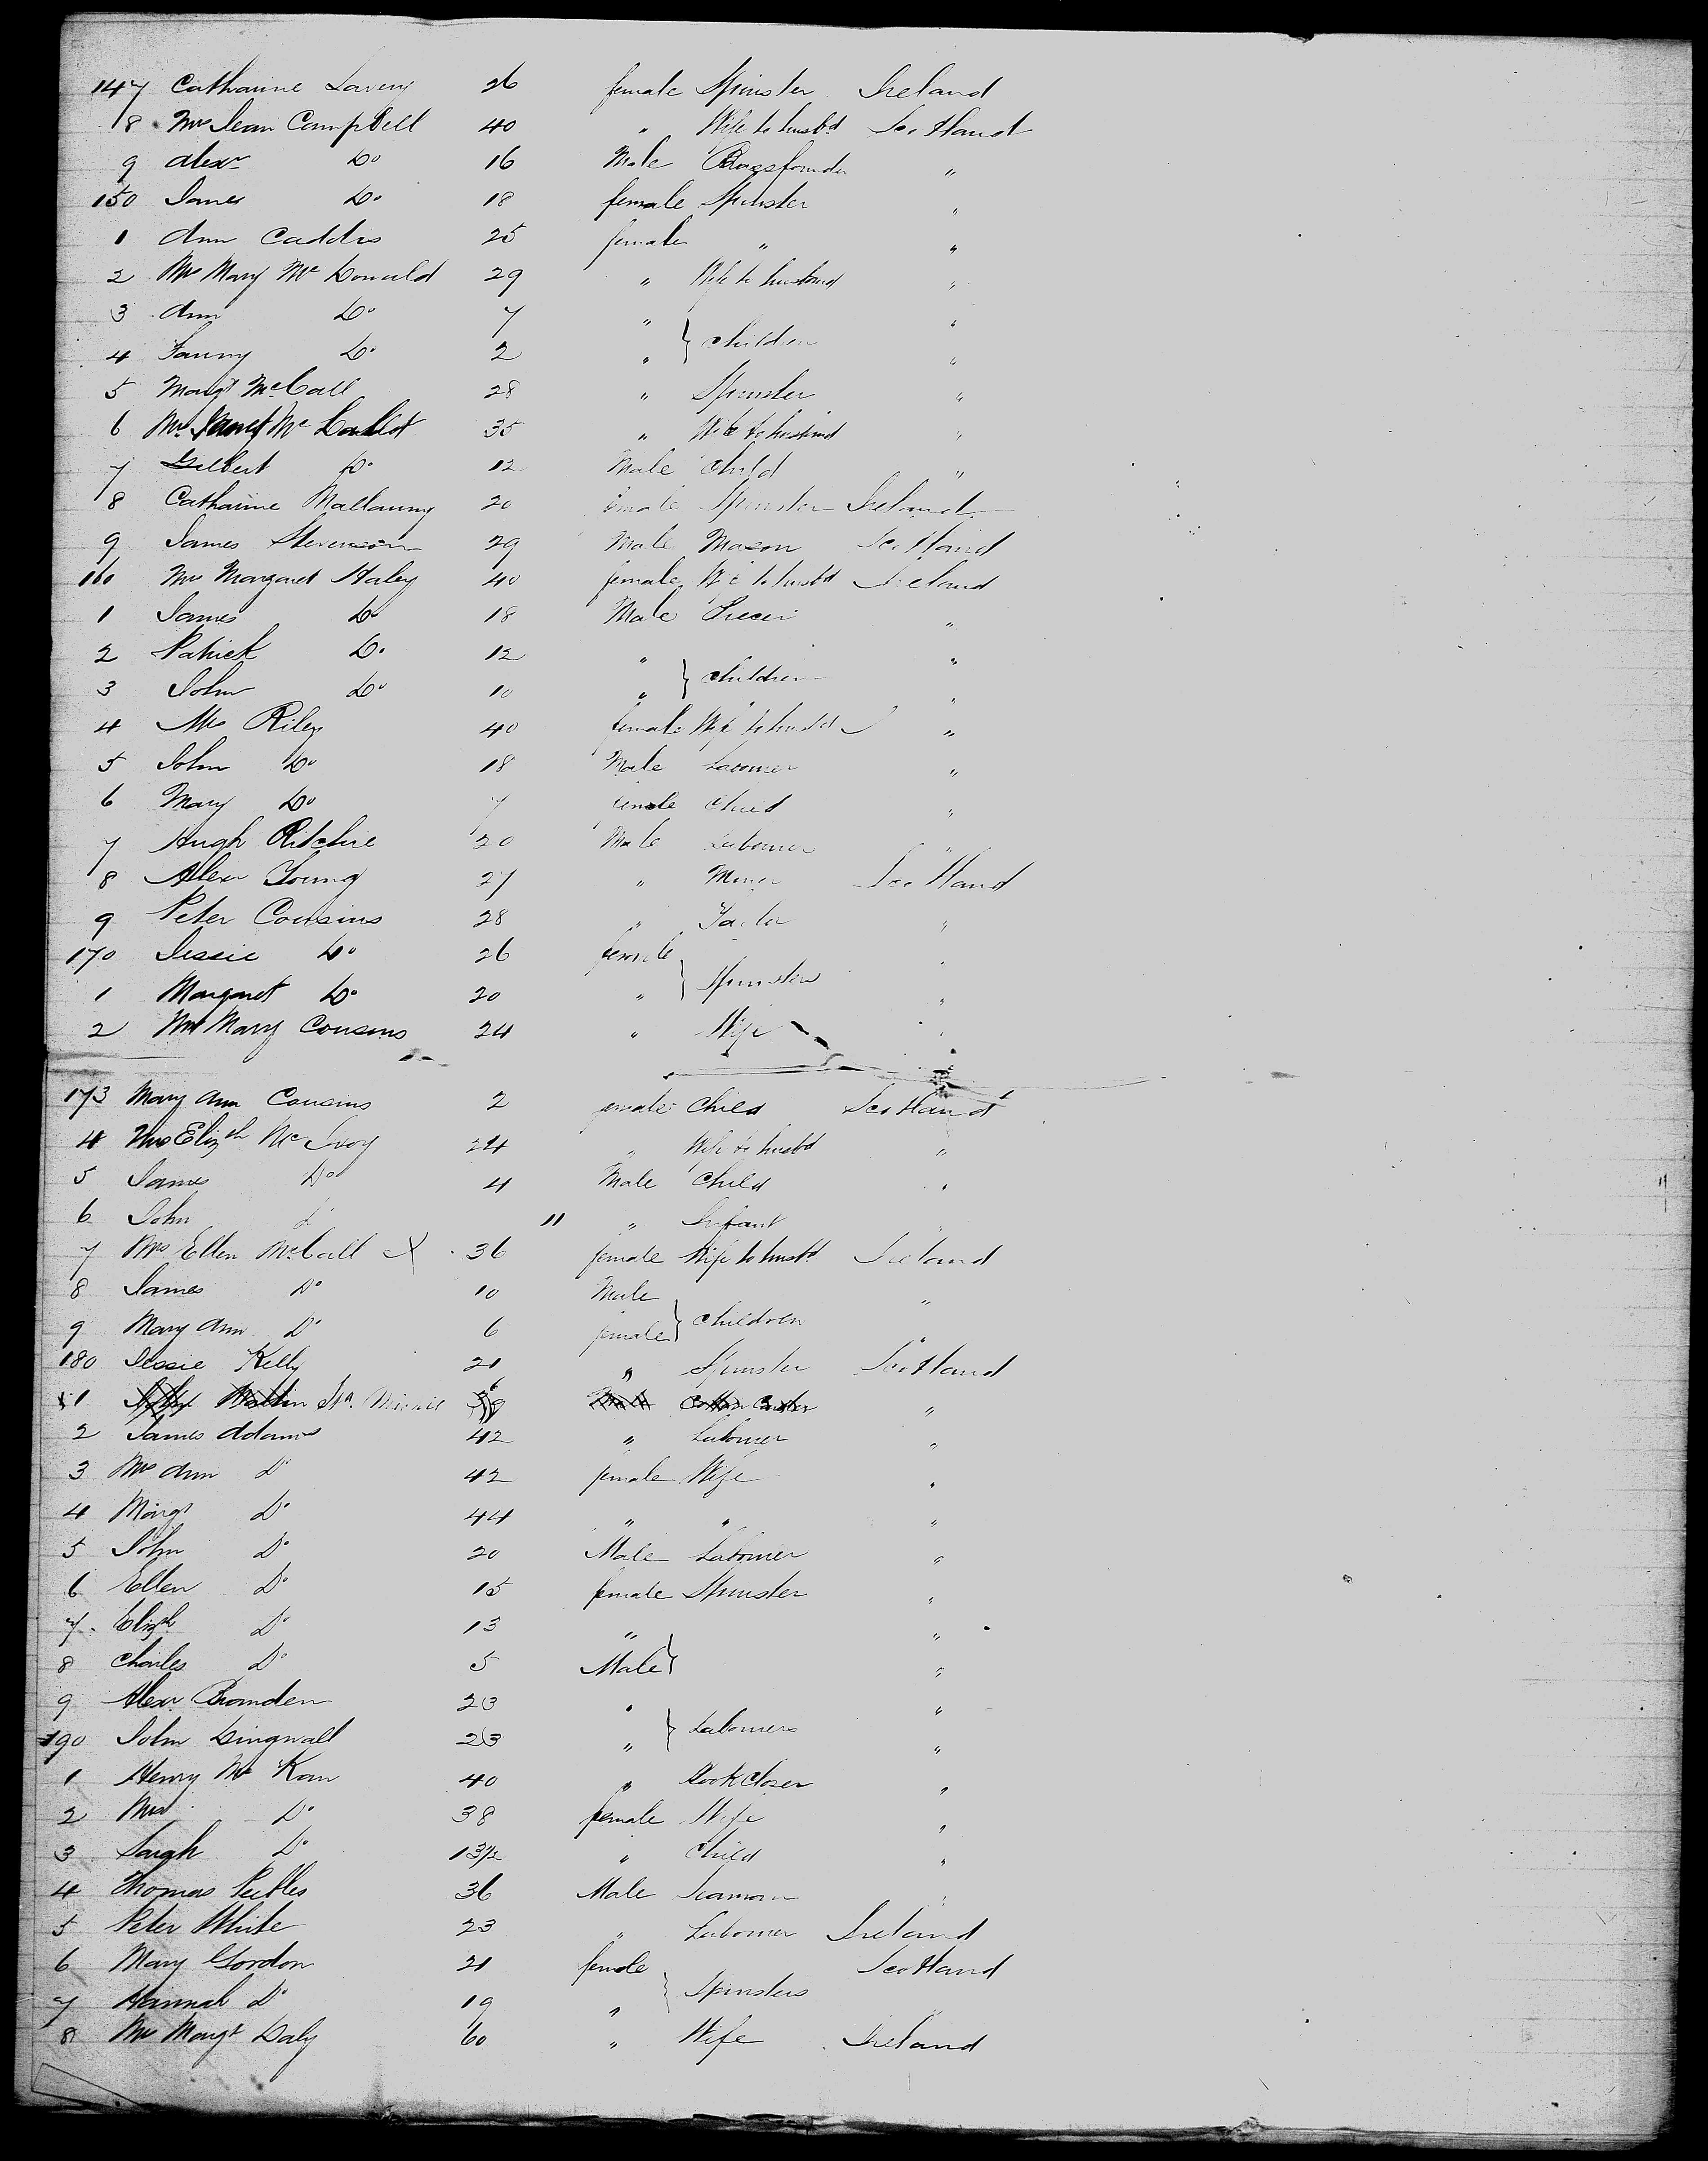 147 Catharine Lavery 26 female Spinster Ireland
8 Mrs Jean Campbell 40 " Wife to husbd Scotland
9 Alexr Do 16 Male Brassfounder "
150 James Do 18 female Spinster "
1 Ann Caddis 25 female " "
2 Mrs Mary Mc Donald 29 " Wife to husband "
3 Ann Do 7 " "
} Children
4 Fanny Do 2 " "
5 Margt McCall 28 " Spinster "
6 Mrs Mc 35 " Wife to husband "
7 Gilbert Do 12 Male Child "
8 Catharine 20 female Spinster Ireland
9 James Stevenson 29 Male Mason Scotland
160 Mrs Margaret Haley 40 female Wife to husbd Ireland
1 James Do 18 Male "
2 Patrick Do 12 " "
} Children
3 John Do 10 " "
4 Mrs Riley 40 female Wife to husbd "
5 John Do 18 Male Labourer "
6 Mary Do 7 female Child "
7 Hugh Ritchie 20 Male Labourer "
8 Alexr Young 27 " Miner Scotland
9 Peter Cousins 28 " "
170 Jessie Do 26 female "
} Spinsters
1 Margaret Do 20 " "
2 Mrs Mary Cousins 24 " Wife "
173 Mary Ann Cousins 2 female Child Scotland
4 Mrs Elizth McIvoy 24 " Wife to husbd "
5 James Do 4 Male Child "
6 John Do " " Infant "
7 Mrs Ellen McCall X 36 female Wife to husbd Ireland
8 James Do 10 Male "
} Children
9 Mary Ann Do 6 female "
180 Jessie Kelly 21 " Spinster Scotland
1 "
2 James Adams 42 " Labourer "
3 Mrs Ann Do 42 female Wife "
4 Margt Do 44 " " "
5 John Do 20 Male Labourer "
6 Ellen Do 15 female Spinster "
7 Elizth Do 13 " "
8 Charles Do 5 Male } "
9 Alexr 23 " "
} Labourers
190 John Dingwall 23 " "
1 Henry Mc 40 " "
2 Mrs Do 38 female Wife "
3 Sarah Do 13/12 " Child "
4 Thomas Peebles 36 Male Seaman "
5 Peter White 23 " Labourer Ireland
6 Mary Gordon 21 female Scotland
} Spinsters
7 Hannah Do 19 "
8 Mrs Margt Daly 60 " Wife Ireland